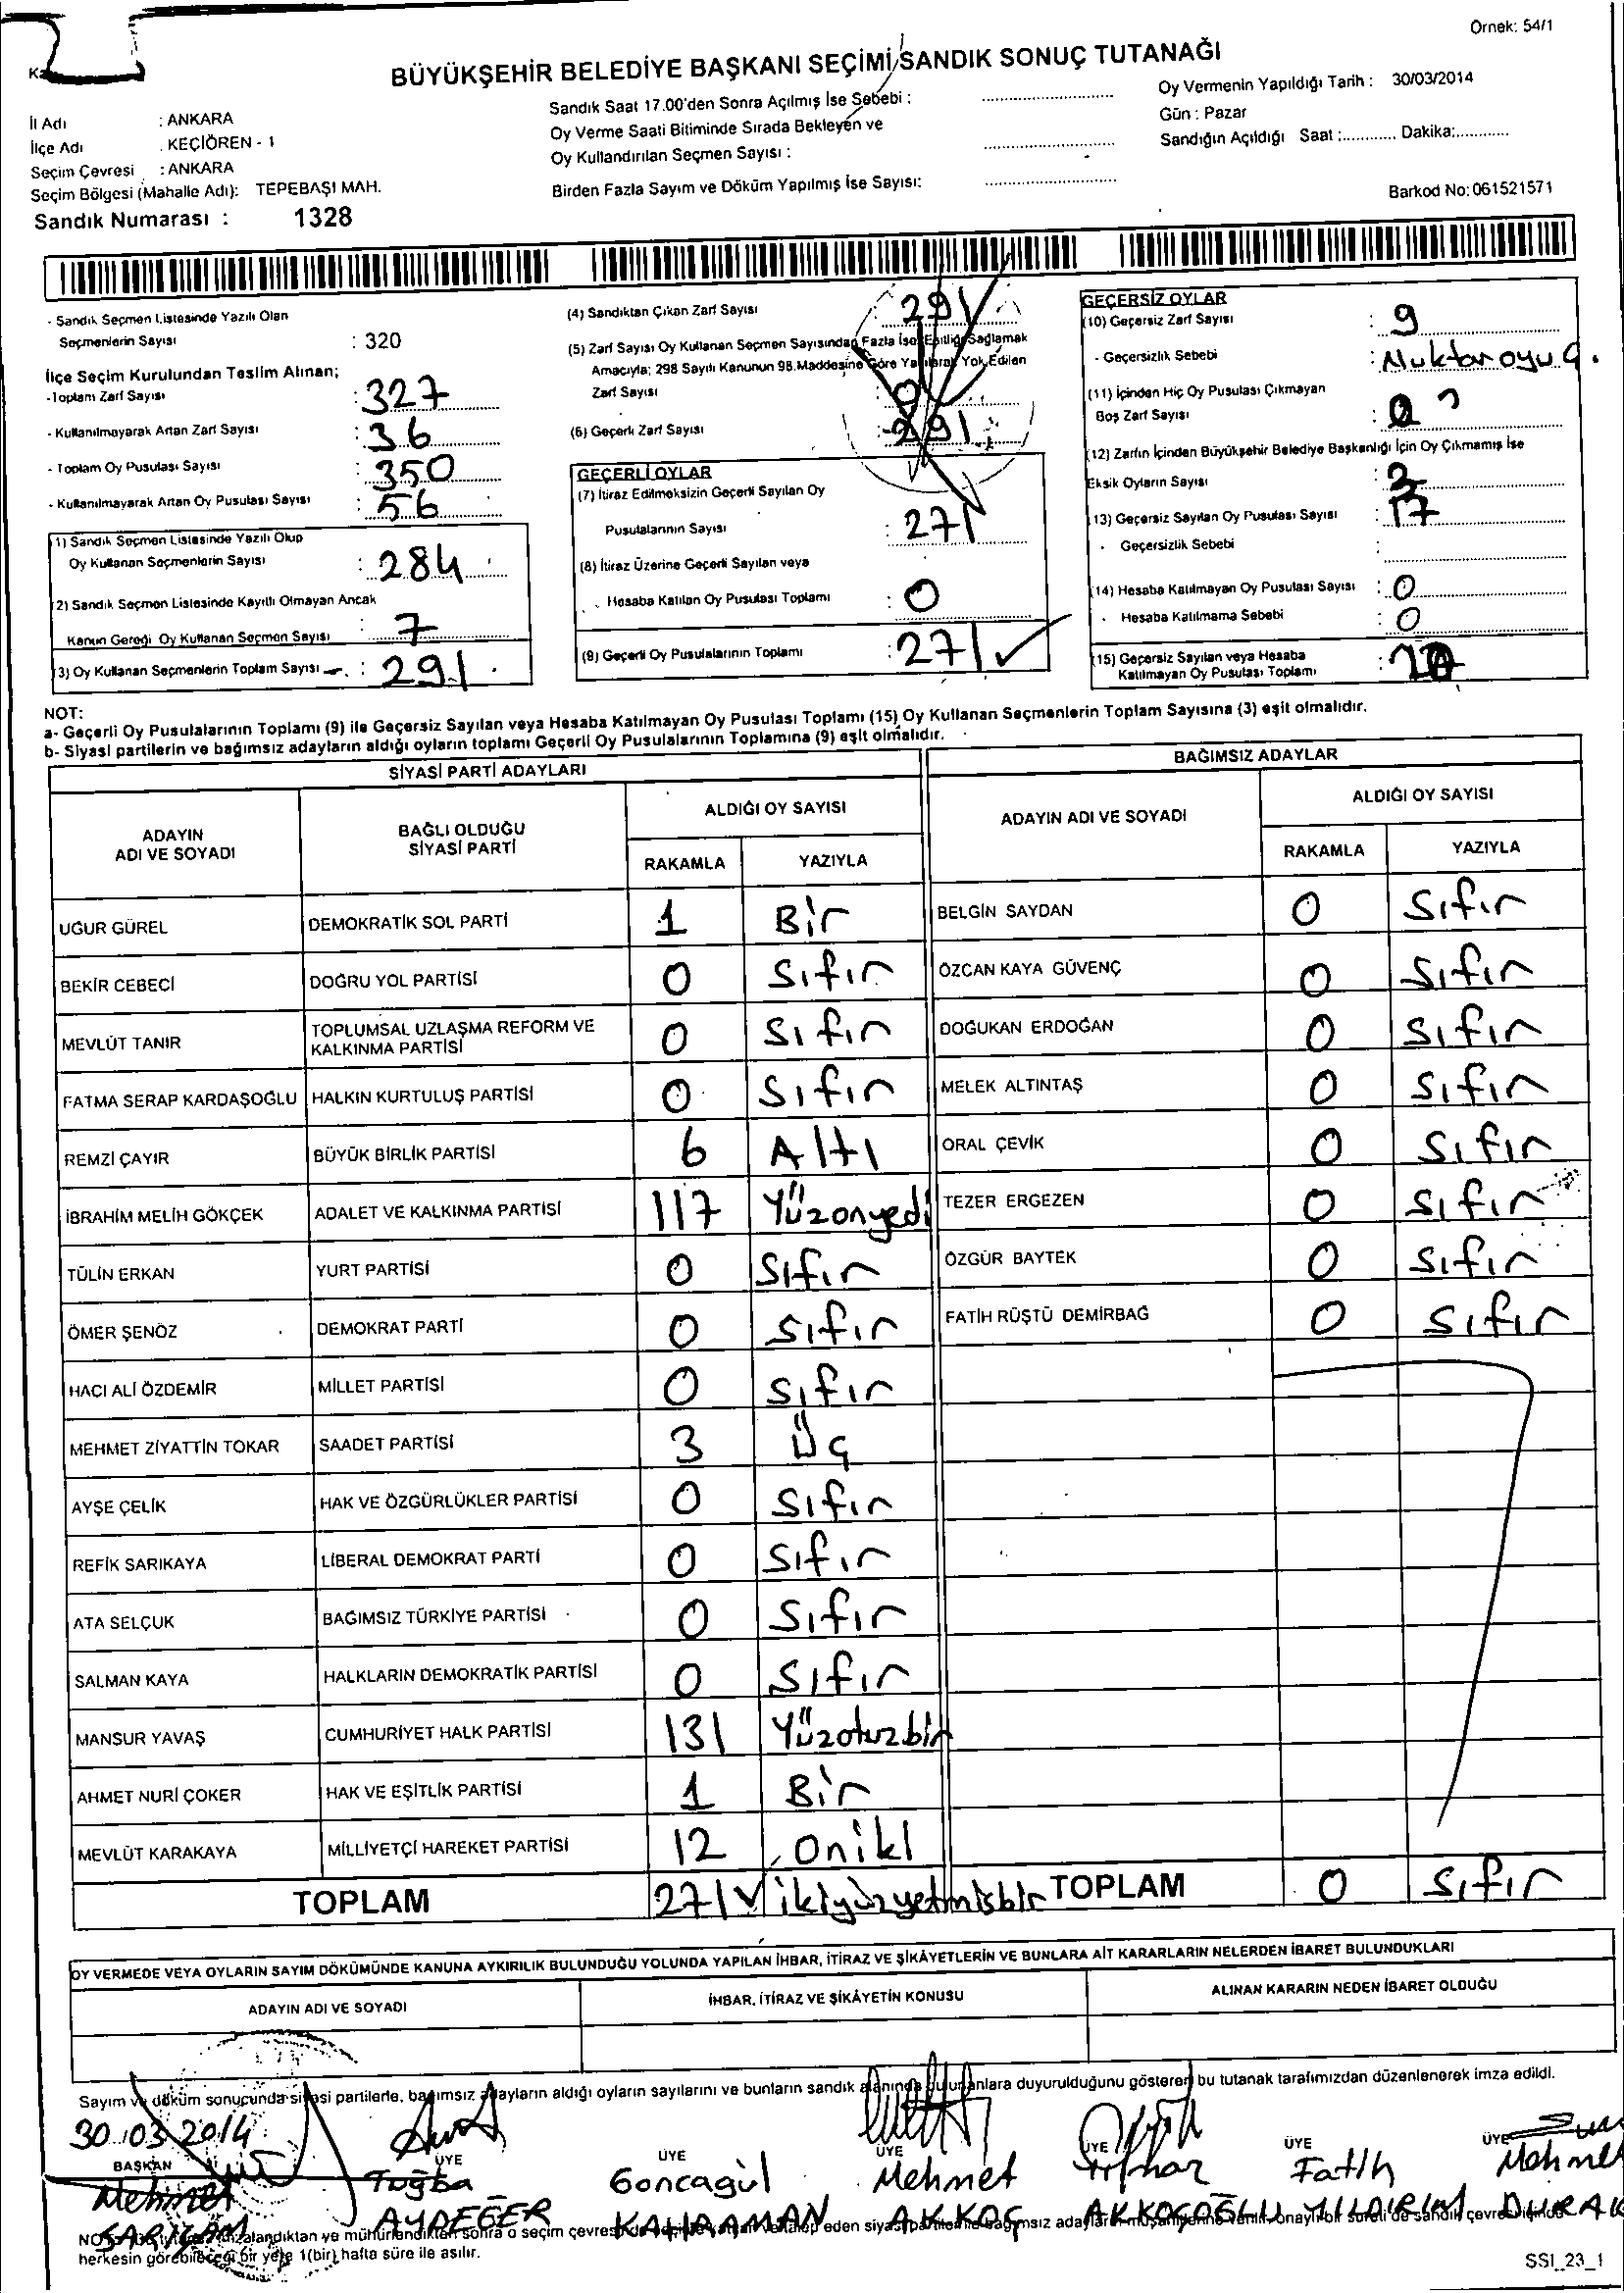 Örnek: 54/1
BÜYÜKŞEHİR BELEDİYE BAŞKANI SEÇİMİ SANDIK SONUÇ TUTANAĞI
İl Adı : ANKARA
İlçe Adı . KEÇİÖREN - 1
Seçim Çevresi : ANKARA
Seçim Bölgesi (Mahalle Adı): TEPEBAŞI MAH.
Sandık Numarası : 1328
Sandık Saat 17.00'den Sonra Açılmış İse Sebebi :
Oy Verme Saati Bitiminde Sırada Bekleyen ve
Oy Kullandırılan Seçmen Sayısı :
Birden Fazla Sayım ve Döküm Yapılmış İse Sayısı:
Oy Vermenin Yapıldığı Tarih : 30/03/2014
Gün : Pazar
Sandığın Açıldığı Saat :............ Dakika:............
Barkod No: 061521571
- Sandık Seçmen Listesinde Yazılı Olan
Seçmenlerin Sayısı : 320
İlçe Seçim Kurulundan Teslim Alınan;
-Toplam Zarf Sayısı : 327
- Kullanılmayarak Artan Zarf Sayısı : 36
- Toplam Oy Pusulası Sayısı : 350
- Kullanılmayarak Artan Oy Pusulası Sayısı : 56
(1) Sandık Seçmen Listesinde Yazılı Olup
Oy Kullanan Seçmenlerin Sayısı : 284
(2) Sandık Seçmen Listesinde Kayıtlı Olmayan Ancak
Kanun Gereği Oy Kullanan Seçmen Sayısı : 7
(3) Oy Kullanan Seçmenlerin Toplam Sayısı : 291
(4) Sandıktan Çıkan Zarf Sayısı 291
(5) Zarf Sayısı Oy Kullanan Seçmen Sayısından Fazla İse Eşitliği Sağlamak
Amacıyla; 298 Sayılı Kanunun 98.Maddesine Göre Yakılarak Yok Edilen
Zarf Sayısı 0
(6) Geçerli Zarf Sayısı : 291
GEÇERLİ OYLAR
(7) İtiraz Edilmeksizin Geçerli Sayılan Oy
Pusulalarının Sayısı : 271
(8) İtiraz Üzerine Geçerli Sayılan veya
Hesaba Katılan Oy Pusulası Toplamı : 0
(9) Geçerli Oy Pusulalarının Toplamı : 271
GEÇERSİZ OYLAR
(10) Geçersiz Zarf Sayısı : 9
- Geçersizlik Sebebi : Muktar oyu
(11) İçinden Hiç Oy Pusulası Çıkmayan
Boş Zarf Sayısı :
(12) Zarfın İçinden Büyükşehir Belediye Başkanlığı İçin Oy Çıkmamış İse
Eksik Oyların Sayısı :
(13) Geçersiz Sayılan Oy Pusulası Sayısı :
- Geçersizlik Sebebi :
(14) Hesaba Katılmayan Oy Pusulası Sayısı : 0
- Hesaba Katılmama Sebebi : 0
(15) Geçersiz Sayılan veya Hesaba
Katılmayan Oy Pusulası Toplamı :
NOT:
a- Geçerli Oy Pusulalarının Toplamı (9) ile Geçersiz Sayılan veya Hesaba Katılmayan Oy Pusulası Toplamı (15) Oy Kullanan Seçmenlerin Toplam Sayısına (3) eşit olmalıdır.
b- Siyasi partilerin ve bağımsız adayların aldığı oyların toplamı Geçerli Oy Pusulalarının Toplamına (9) eşit olmalıdır.
SİYASİ PARTİ ADAYLARI
ADAYIN ADI VE SOYADI BAĞLI OLDUĞU SİYASİ PARTİ ALDIĞI OY SAYISI
RAKAMLA YAZIYLA
UĞUR GÜREL DEMOKRATİK SOL PARTİ 1 Bir
BEKİR CEBECİ DOĞRU YOL PARTİSİ 0 Sıfır
MEVLÜT TANIR TOPLUMSAL UZLAŞMA REFORM VE KALKINMA PARTİSİ 0 Sıfır
FATMA SERAP KARDAŞOĞLU HALKIN KURTULUŞ PARTİSİ 0 Sıfır
REMZİ ÇAYIR BÜYÜK BİRLİK PARTİSİ 6 Altı
İBRAHİM MELİH GÖKÇEK ADALET VE KALKINMA PARTİSİ 117 Yüzonyedi
TÜLİN ERKAN YURT PARTİSİ 0 Sıfır
ÖMER ŞENÖZ DEMOKRAT PARTİ 0 Sıfır
HACI ALİ ÖZDEMİR MİLLET PARTİSİ 0 Sıfır
MEHMET ZİYATTİN TOKAR SAADET PARTİSİ 3 Üç
AYŞE ÇELİK HAK VE ÖZGÜRLÜKLER PARTİSİ 0 Sıfır
REFİK SARIKAYA LİBERAL DEMOKRAT PARTİ 0 Sıfır
ATA SELÇUK BAĞIMSIZ TÜRKİYE PARTİSİ 0 Sıfır
SALMAN KAYA HALKLARIN DEMOKRATİK PARTİSİ 0 Sıfır
MANSUR YAVAŞ CUMHURİYET HALK PARTİSİ 131 Yüzotuzbir
AHMET NURİ ÇOKER HAK VE EŞİTLİK PARTİSİ 1 Bir
MEVLÜT KARAKAYA MİLLİYETÇİ HAREKET PARTİSİ 12 Oniki
TOPLAM 271 ikiyüzyetmişbir
BAĞIMSIZ ADAYLAR
ADAYIN ADI VE SOYADI ALDIĞI OY SAYISI
RAKAMLA YAZIYLA
BELGİN SAYDAN 0 Sıfır
ÖZCAN KAYA GÜVENÇ 0 Sıfır
DOĞUKAN ERDOĞAN 0 Sıfır
MELEK ALTINTAŞ 0 Sıfır
ORAL ÇEVİK 0 Sıfır
TEZER ERGEZEN 0 Sıfır
ÖZGÜR BAYTEK 0 Sıfır
FATİH RÜŞTÜ DEMİRBAĞ 0 Sıfır
TOPLAM 0 Sıfır
OY VERMEDE VEYA OYLARIN SAYIM DÖKÜMÜNDE KANUNA AYKIRILIK BULUNDUĞU YOLUNDA YAPILAN İHBAR, İTİRAZ VE ŞİKÂYETLERİN VE BUNLARA AİT KARARLARIN NELERDEN İBARET BULUNDUKLARI
ADAYIN ADI VE SOYADI İHBAR, İTİRAZ VE ŞİKÂYETİN KONUSU ALINAN KARARIN NEDEN İBARET OLDUĞU
Sayım ve döküm sonucunda siyasi partilerle, bağımsız adayların aldığı oyların sayılarını ve bunların sandık alanında bulunanlara duyurulduğunu gösteren bu tutanak tarafımızdan düzenlenerek imza edildi.
30.03.2014
BAŞKAN ÜYE ÜYE ÜYE ÜYE ÜYE ÜYE
Mehmet Tuğba Goncagül Mehmet Fatih Mehmet
AYDEĞER KAHRAMAN AKKOÇ AKKOÇOĞLU YILDIRIM DURAK
herkesin görebileceği bir yere 1(bir) hafta süre ile asılır.
SSI_23_1